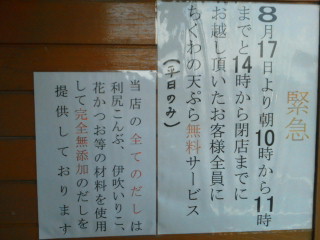 緊急
8月17日より朝10時から11時
までと14時から閉店までに
お越し頂いたお客様全員に
ちくわの天ぷら無料サービス
(平日のみ)
当店の全てのだしは
利尻こんぶ、伊吹いりこ、
花かつお等の材料を使用
して完全無添加のだしを
提供しております